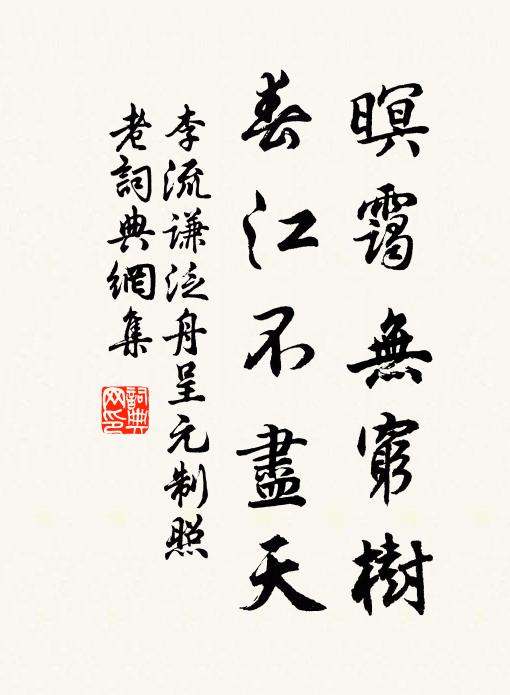 暝靄無窮樹
春江不盡天
李流謙泛舟呈元制照
老詞典網集
詞典
网印